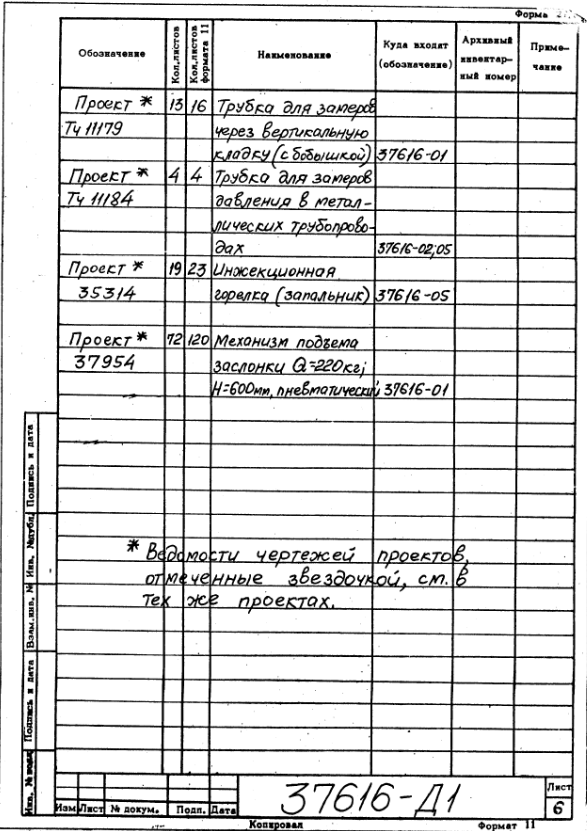 Форма
Обозначение
Кол.листов
Кол.листов формата 11
Наименование
Куда входят (обозначение)
Архивный инвентар-ный номер
Приме-чание
Проект * 13 16 Трубка для замеров
ТЧ 11179 через вертикальную
кладку (с бобышкой) 37616-01
Проект * 4 4 Трубка для замеров
ТЧ 11184 давления в метал-
лических трубопрово-
дах 37616-02;05
Проект * 19 23 Инжекционная
35314 горелка (запальник) 37616-05
Проект * 72 120 Механизм подъема
37954 заслонки Q=220кг;
H=600мм, пневматический 37616-01
* Ведомости чертежей проектов,
отмеченные звездочкой, см. в
тех же проектах.
Подпись и дата
Инв. №дубл.
Взам.инв. №
Подпись и дата
Инв. № подл.
Изм Лист № докум. Подп. Дата
37616-Д1
Лист
6
Копировал Формат 11